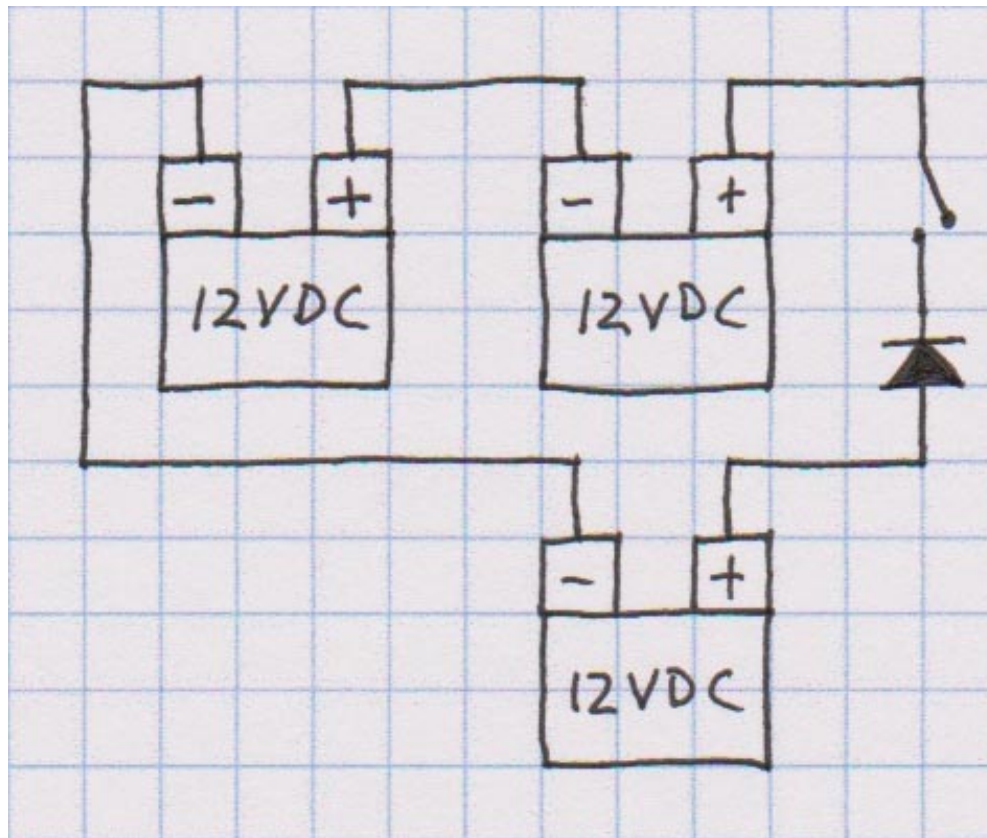 - + - +
12VDC 12VDC
- +
12VDC